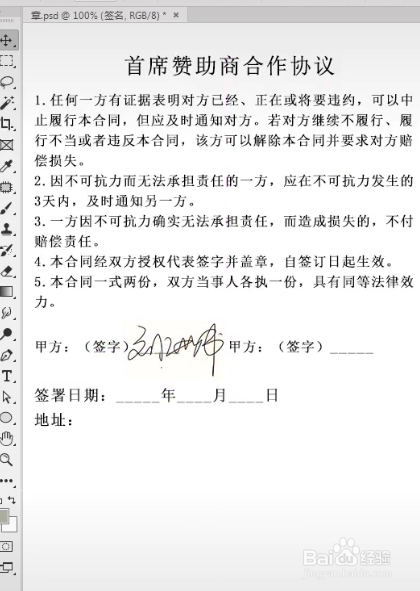 章.psd @ 100% (签名, RGB/8) * ×
首席赞助商合作协议
1.任何一方有证据表明对方已经、正在或将要违约，可以中
止履行本合同，但应及时通知对方。若对方继续不履行、履
行不当或者违反本合同，该方可以解除本合同并要求对方赔
偿损失。
2.因不可抗力而无法承担责任的一方，应在不可抗力发生的
3天内，及时通知另一方。
3.一方因不可抗力确实无法承担责任，而造成损失的，不付
赔偿责任。
4.本合同经双方授权代表签字并盖章，自签订日起生效。
5.本合同一式两份，双方当事人各执一份，具有同等法律效
力。
甲方：（签字） 甲方：（签字）_____
签署日期：_____年____月____日
地址：
Baidu经验
jingyan.baidu.com